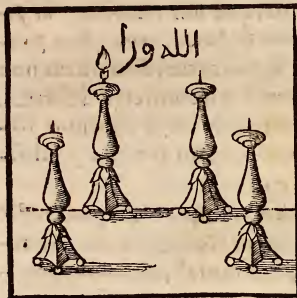 الله ورا